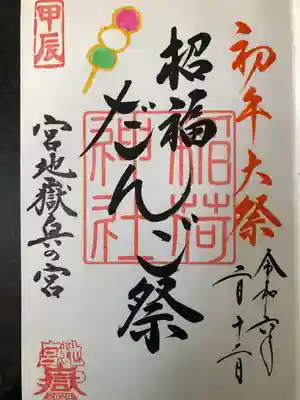 初午大祭
令和六年
二月十二日
招福
だんご祭
稲荷
神社
甲辰
宮地嶽兵の宮